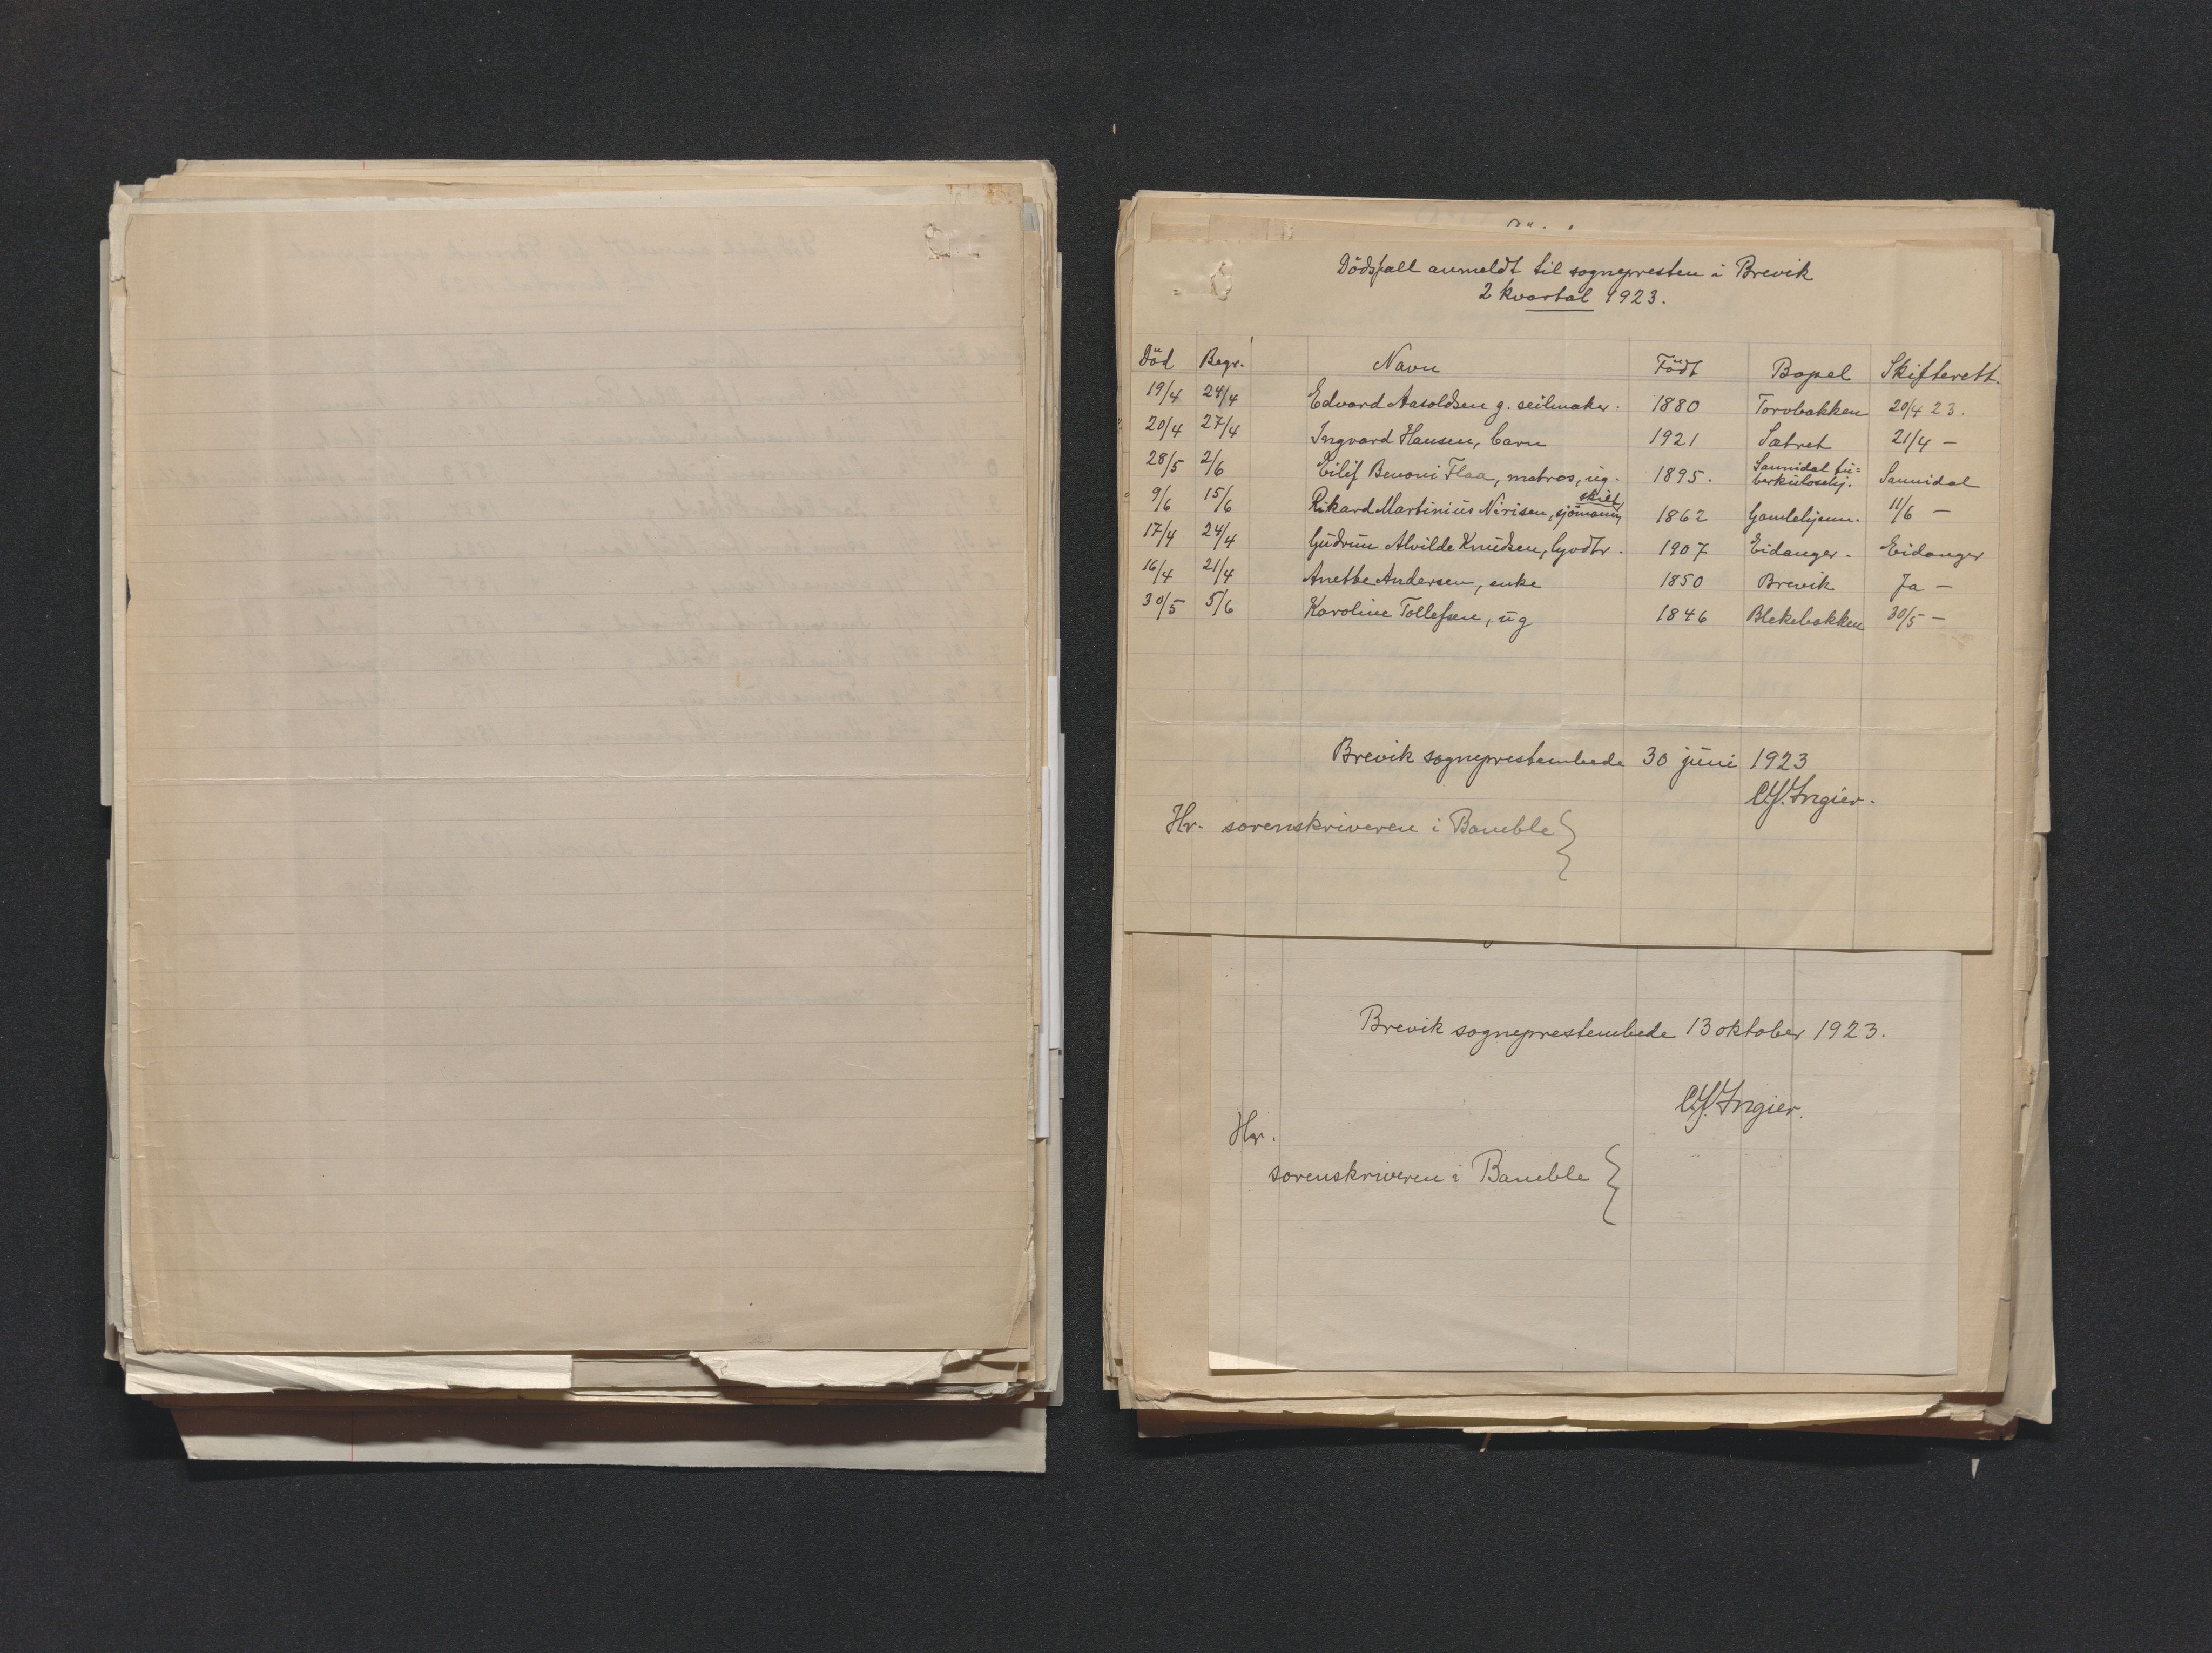 Dödsfall anmeldt til sognepresten i Brevik
2 kvartal 1923.
Död Begr. Navn Födt Bopel Skifterett.
19/4 24/4 Edvard Aasoldsen g. seilmaker. 1880 Torvbakken 20/4 23.
20/4 27/4 Ingvard Hansen, barn 1921 Sætret 21/4 —
28/5 2/6 Eilif Benoni Flaa, matros, ug. 1895. Sannidal tu=
berkulosehj. Sannidal
9/6 15/6 Rikard Martinius Nirisen, sjömann, skilt 1862 Gamlehjem. 11/6 —
17/4 24/4 Gudrun Alvilde Knudsen, 1907 Eidanger. Eidanger
16/4 21/4 Anette Andersen, enke 1850 Brevik Ja —
30/5 5/6 Karoline Tollefsen, ug 1846 Blekebakken 30/5 —
Brevik sogneprestembede 30 juni 1923
Ingier.
Hr. sorenskriveren i Bamble
Brevik sogneprestembede 13 oktober 1923.
Ingier.
Hr.
sorenskriveren i Bamble